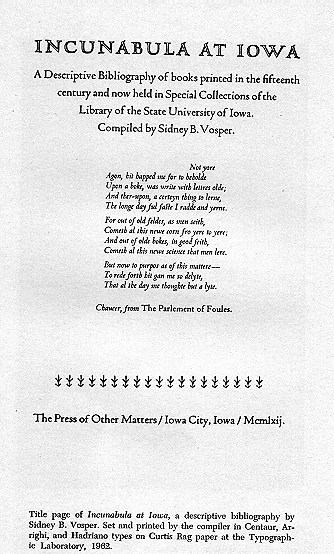 INCUNABULA AT IOWA
A Descriptive Bibliography of books printed in the fifteenth
century and now held in Special Collections of the
Library of the State University of Iowa.
Compiled by Sidney B. Vosper.
Not yore
Agon, hit happed me for to beholde
Upon a boke, was write with lettres olde;
And ther-upon, a certeyn thing to lerne,
The longe day ful faste I radde and yerne.
For out of olde feldes, as men seith,
Cometh al this newe corn fro yere to yere;
And out of olde bokes, in good feith,
Cometh al this newe science that men lere.
But now to purpos as of this matere—
To rede forth hit gan me so delyte,
That al the day me thoughte but a lyte.
Chaucer, from The Parlement of Foules.
The Press of Other Matters / Iowa City, Iowa / Mcmlxij.
Title page of Incunabula at Iowa, a descriptive bibliography by
Sidney B. Vosper. Set and printed by the compiler in Centaur, Ar-
righi, and Hadriano types on Curtis Rag paper at the Typograph-
ic Laboratory, 1962.